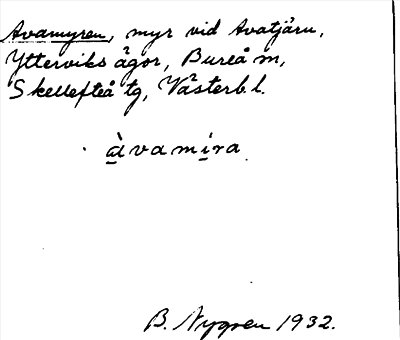 Avamyren, myr vid Avatjärn,
Ytterviks ägor, Bureå m,
Skellefteå tg, Västerb.l.
àvamira
B. Nygren 1932.